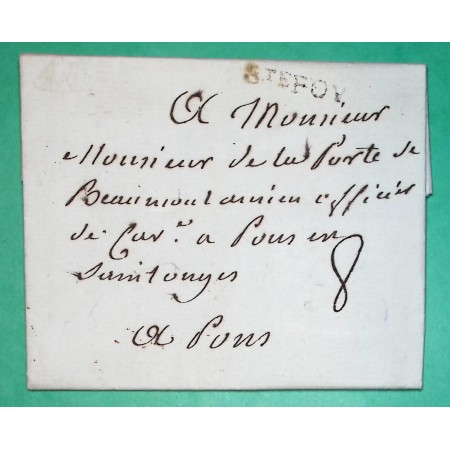 STE FOY
A Monsieur
Monsieur de la Porte de
Beaumont ancien officier
de Car.e a Pons en
Saintonges
8
A Pons